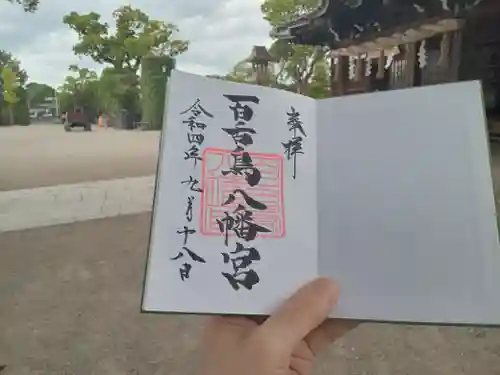 奉拝
百舌鳥八幡宮
令和四年九月十八日